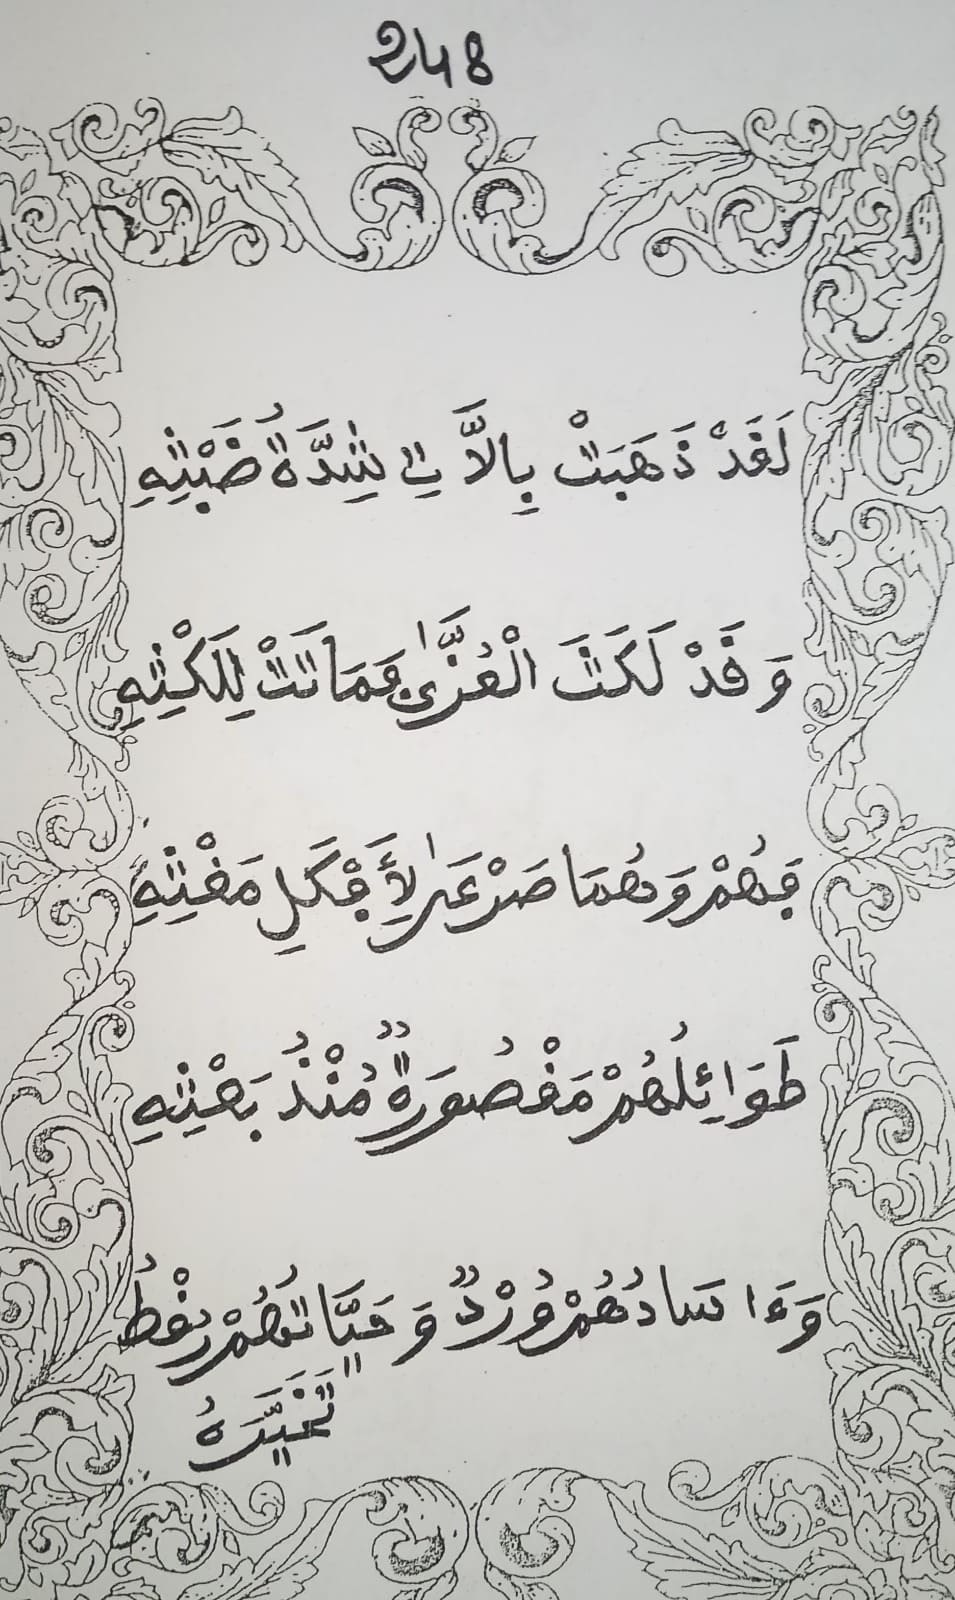 248
لَغَدْ ذَهَبَتْ بِالاَّتِ شِدَّةُ ضَبْثِهِ
وَقَدْ لَكَثَ الْعُزَّىٰ وَمَاتَتْ لِلَكْثِهِ
وَهُمْ صَرْعَىٰ لَِّ كَلِ مَغْثِهِ
طَوَائِلُهُمْ مَغْصُورَةٌ مُنْذُ بَعْثِهِ
وَءَاسَادُهُمْ دُرْدٌ وَحَيَّاتُهُمْ رُفْطُ
تَخَيَّرَهُ